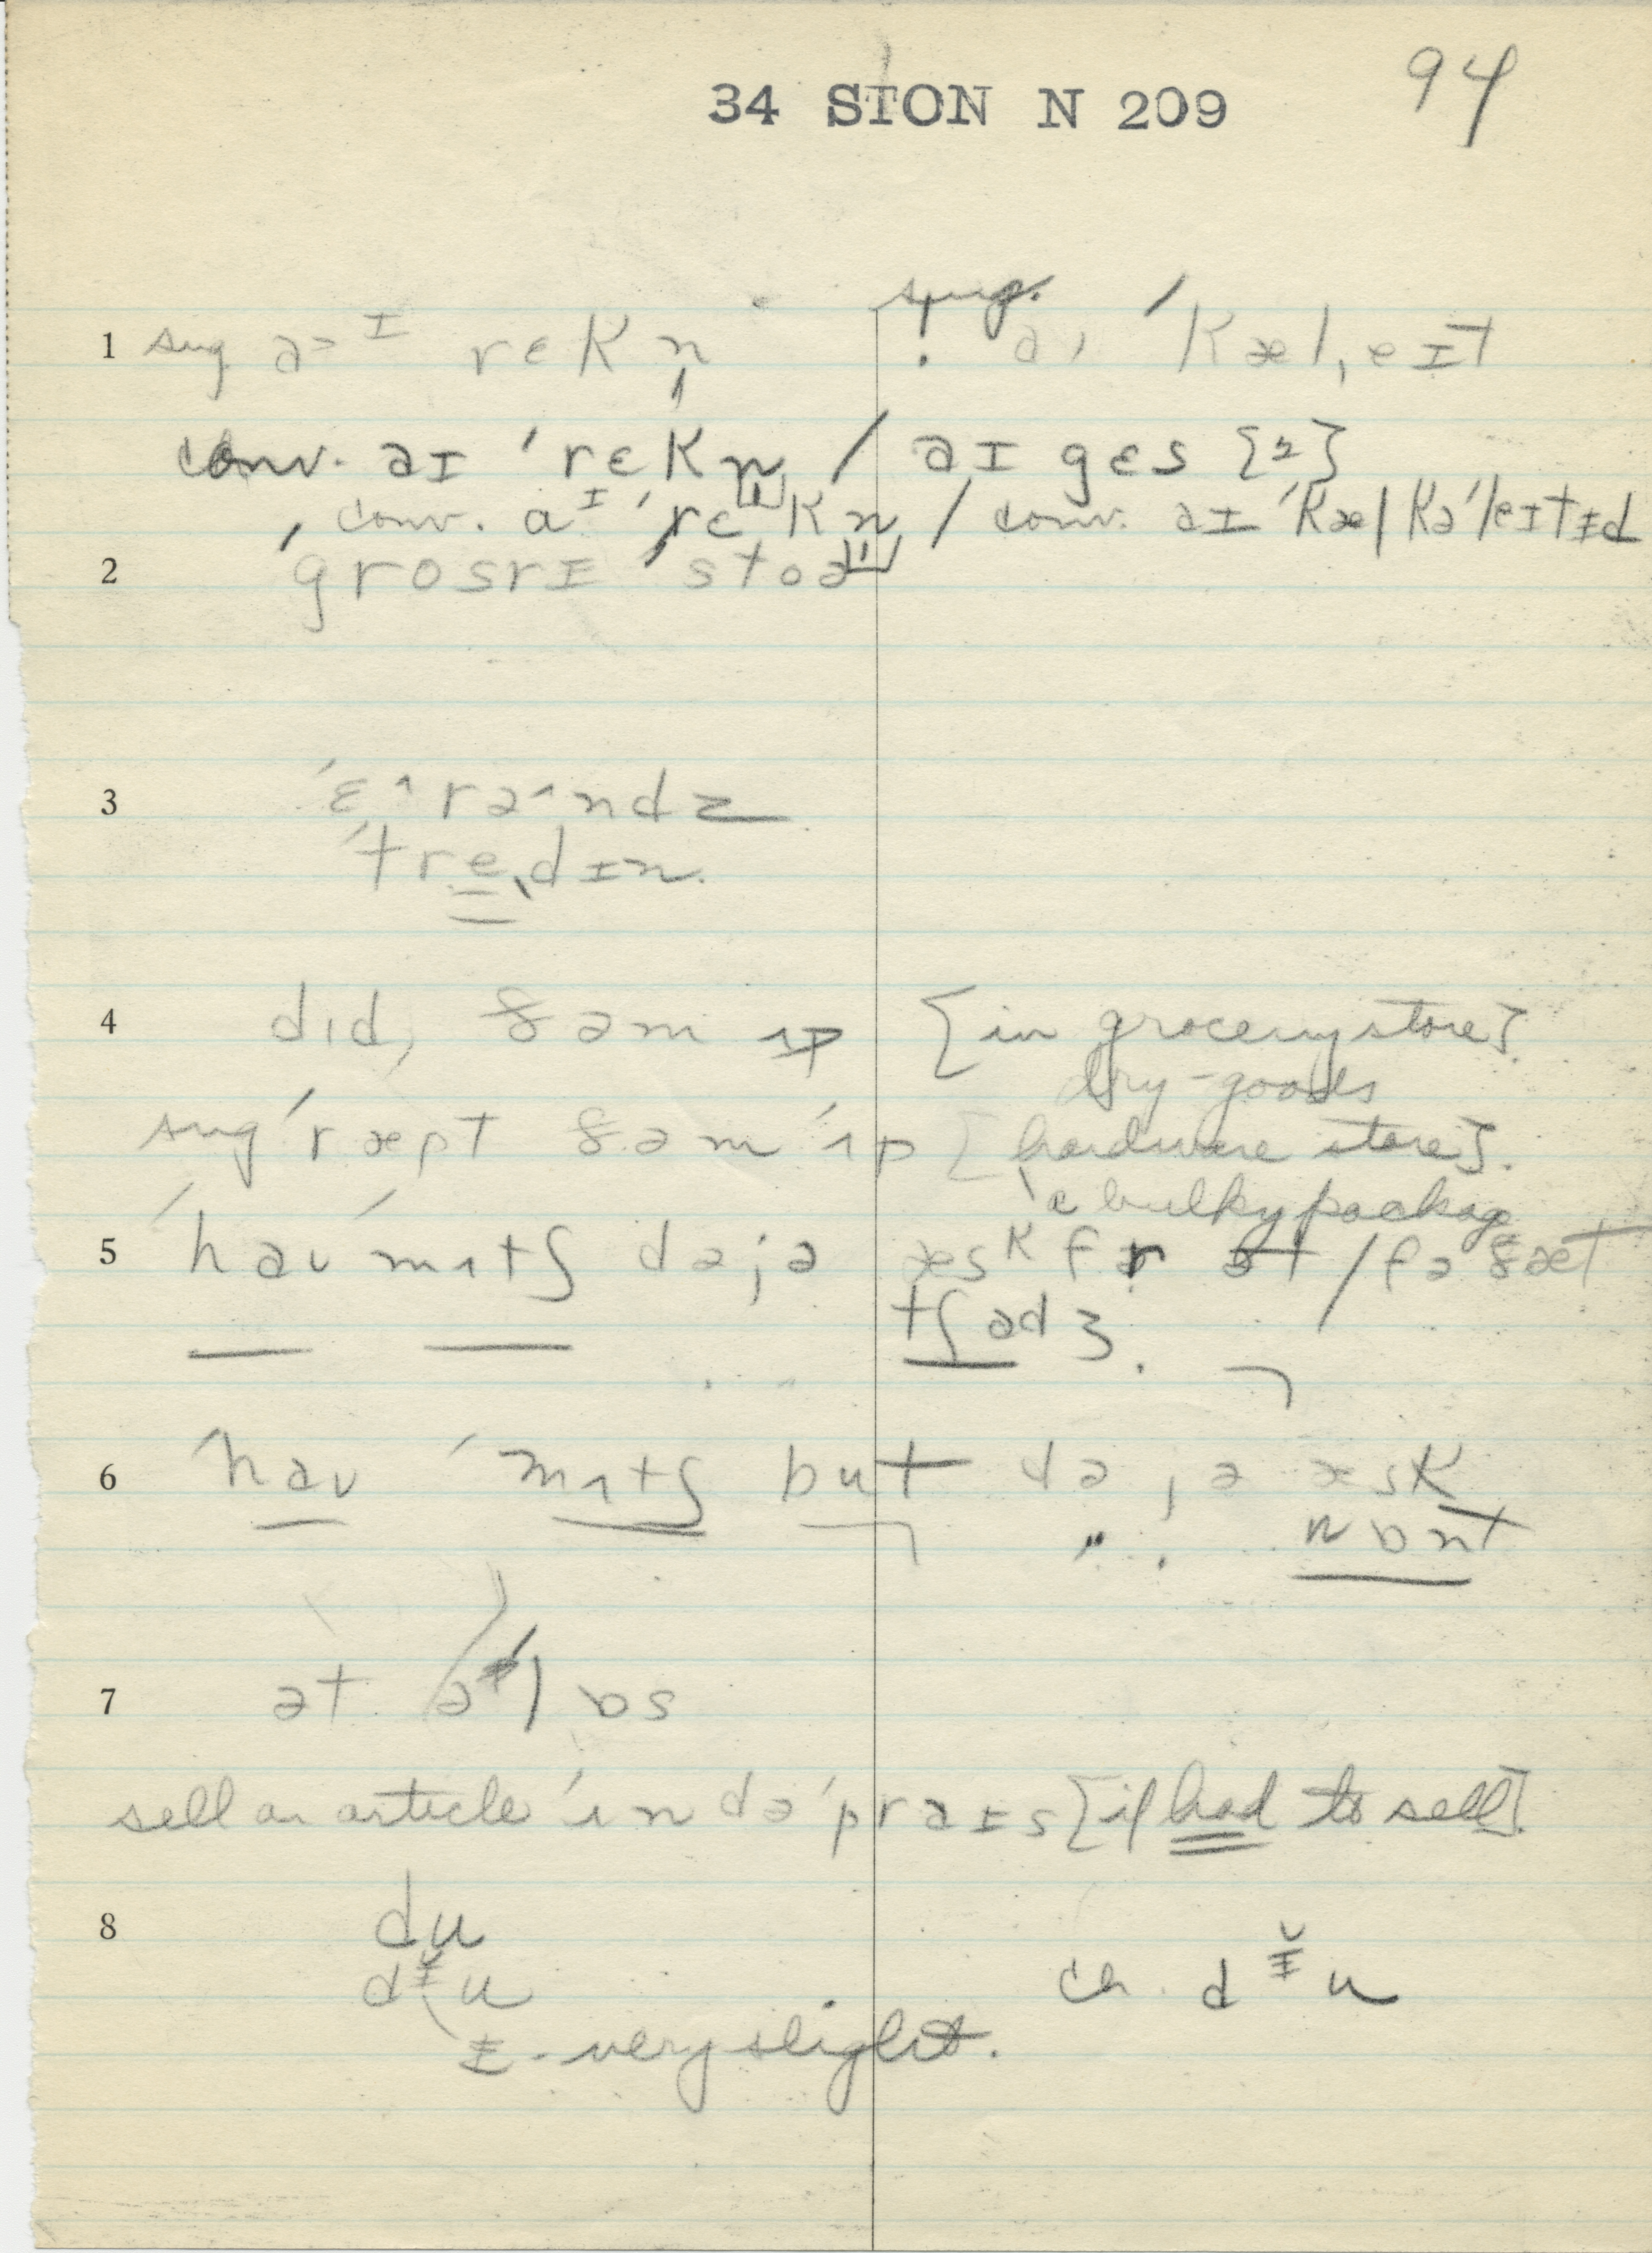 34 STON N 209
94
1 sug. rɛkn̩ ! sug. ˈkæl,eɪt
conv. əɪ ˈrɛkn̩ / əɪ gɛs [2]
conv. aᴵ ˈrɛkn̩ / conv. əɪ ˈkælkəˈleɪtɨd
2 ˈgrosrɪ ˈstoə
3 ˈɛ^rə^ndz
ˈtredɪn.
4 dɪd, ðəm ʌp [in grocery store].
dry-goods
sug ˈræpt ðəm ˈʌp [hardware store].
a bulky package
5 ˈhaʊ ˈmʌtʃ dəjə æsk fər ət / fə ðæt
tʃadʒ.
6 ˈhaʊ ˈmʌtʃ but də jə æsk
" . wɒnt
7 ət ə lɒs
sell an article ˈʌndəˈpraɪs [if had to sell].
8 du
dᵻ̆u ch. dᵻ̆u
ᵻ - very slight.